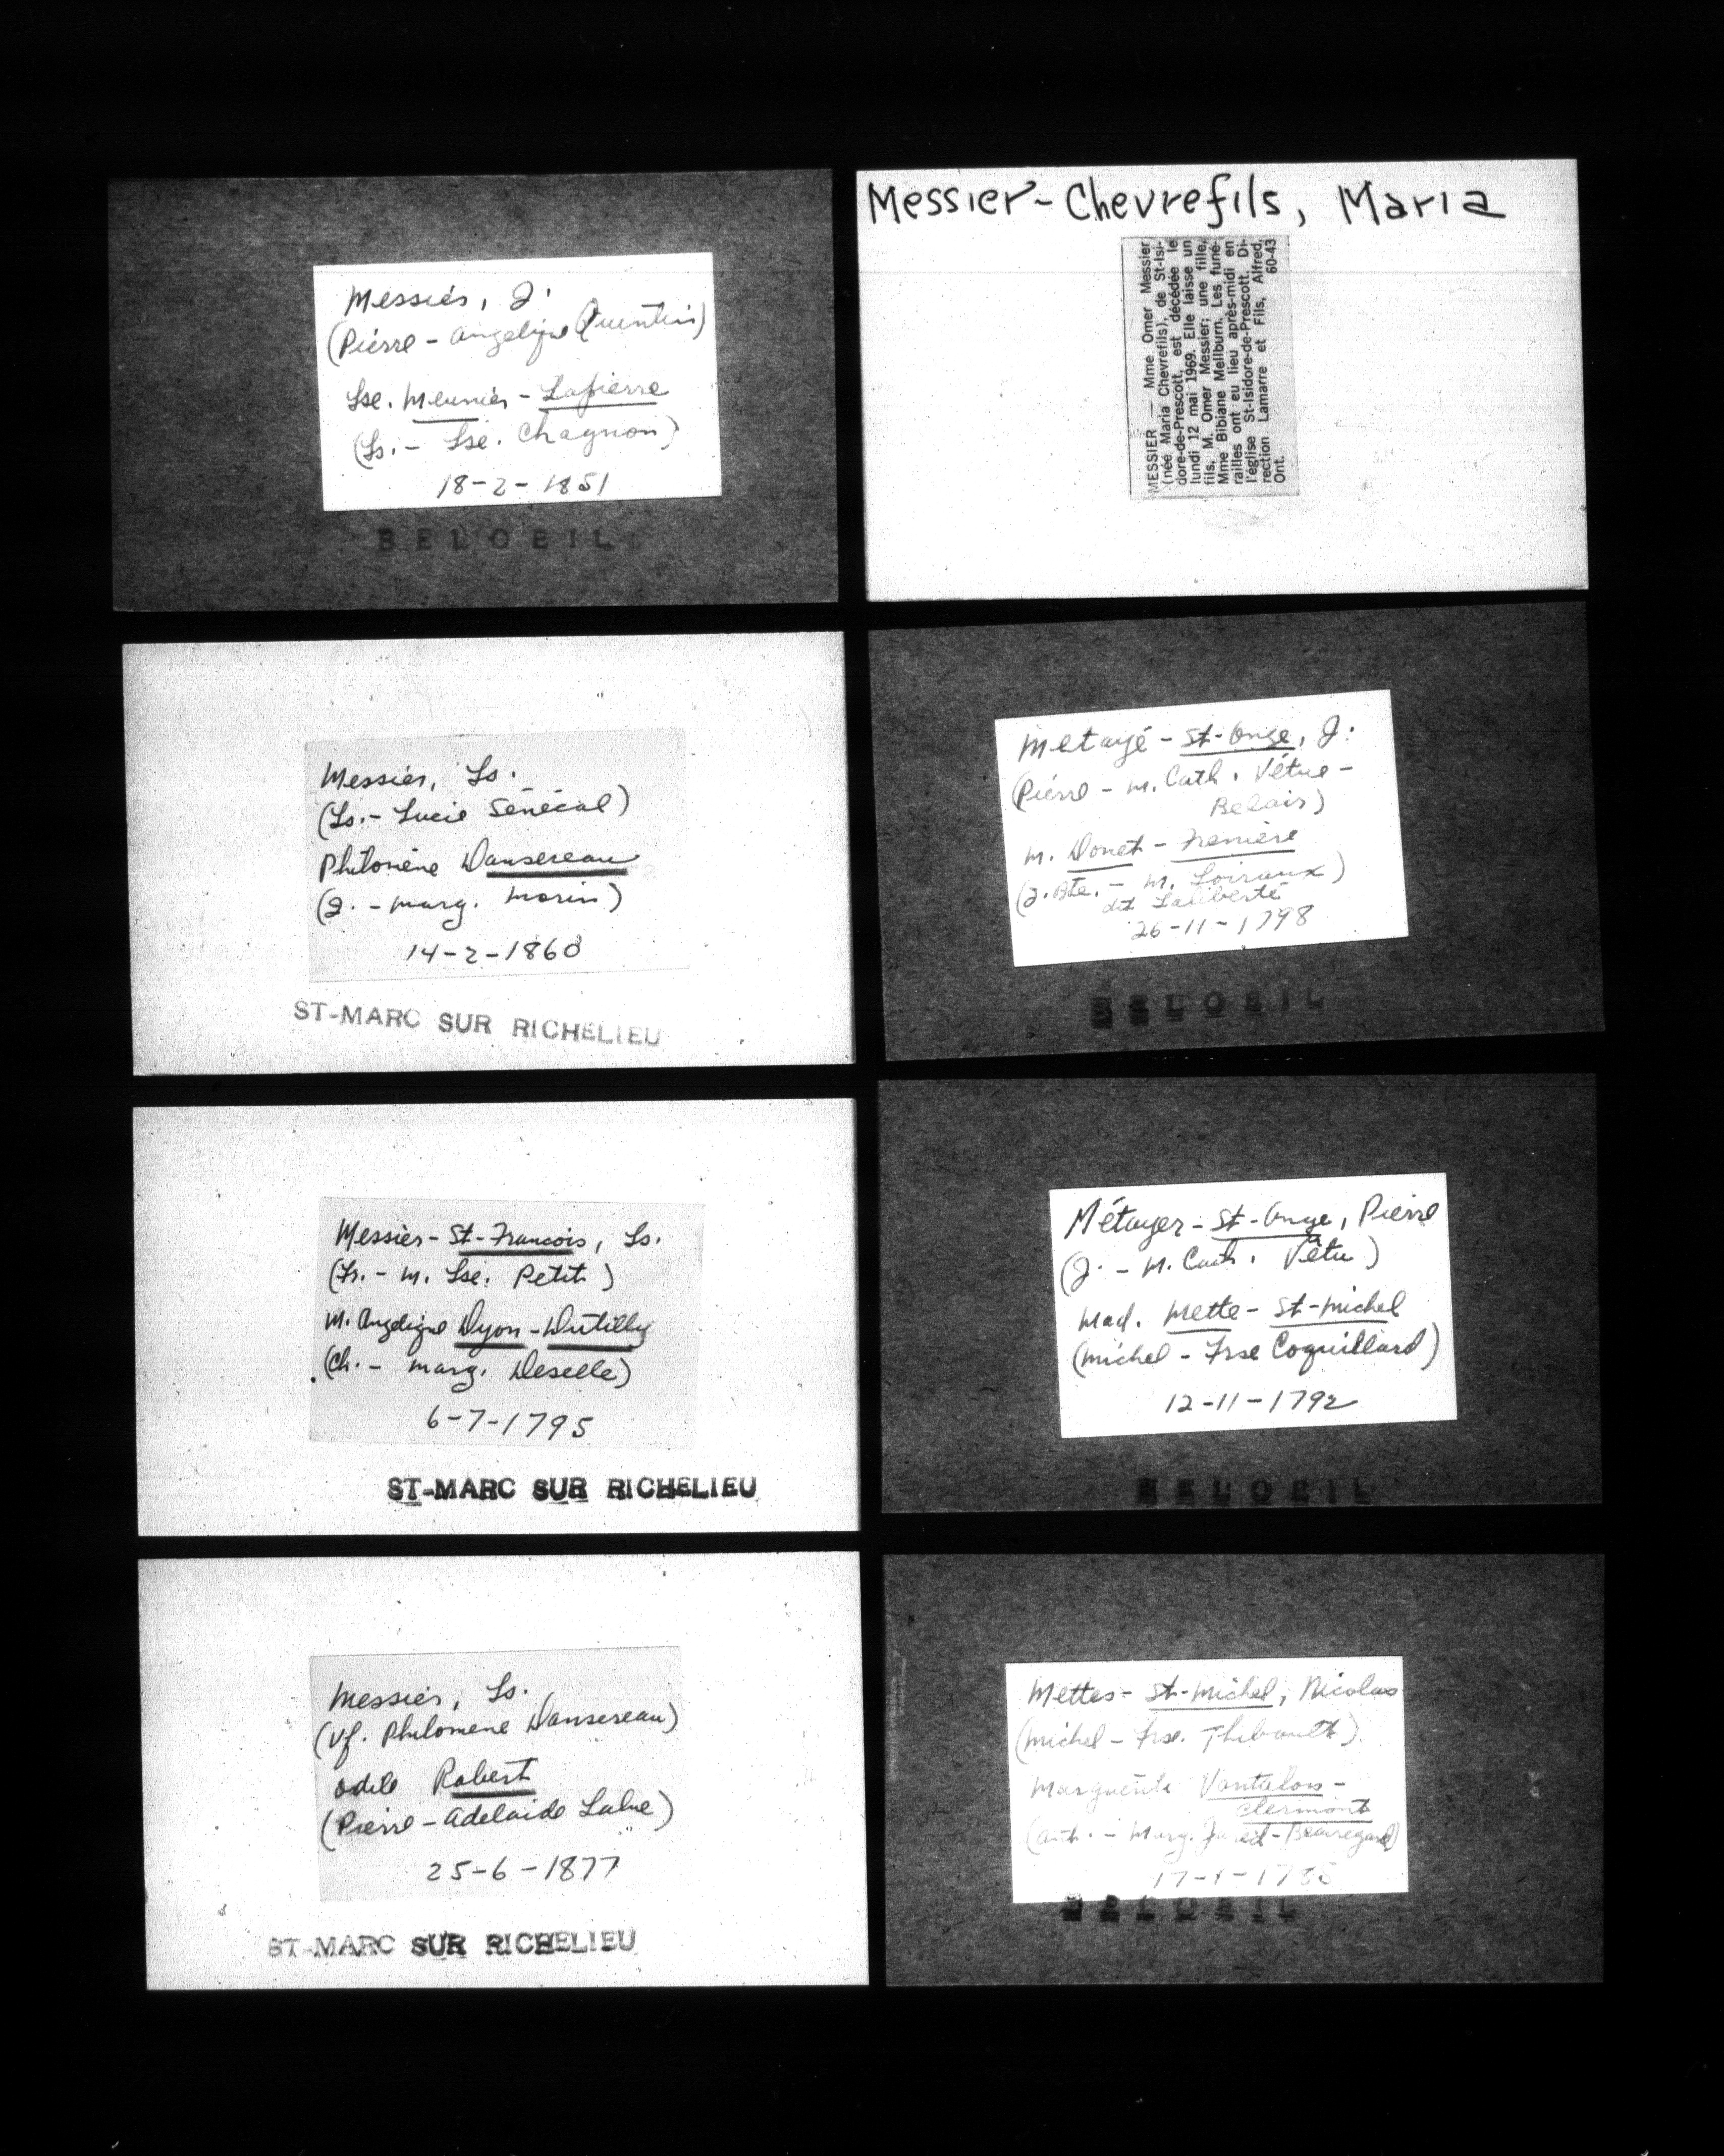 Messier, J.
(Pierre - Angelique Quintin)
Lse. Meunier - Lapierre
(Ls. - Lse. Chagnon)
18-2-1851
BELOEIL
Messier, Ls.
(Ls. - Lucie Sénécal)
Philomène Dansereau
(J. - Marg. Morin)
14-2-1860
ST-MARC SUR RICHELIEU
Messier - St-Francois, Ls.
(Fr. - M. Lse. Petit)
M. Angelique Dyon - Dutilly
(Ch. - Marg. Deselle)
6-7-1795
ST-MARC SUR RICHELIEU
Messier, Ls.
(Vf. Philomene Dansereau)
Odile Robert
(Pierre - Adelaide Lalue)
25-6-1877
ST-MARC SUR RICHELIEU
Messier-Chevrefils, Maria
MESSIER — Mme Omer Messier
(née Maria Chevrefils), de St-Isi-
dore-de-Prescott, est décédée le
lundi 12 mai 1969. Elle laisse un
fils, M. Omer Messier; une fille,
Mme Bibiane Mellburn. Les funé-
railles ont eu lieu après-midi en
l'église St-Isidore-de-Prescott. Di-
rection Lamarre et Fils, Alfred,
Ont. 60-43
Metayé - St-Onge, J.
(Pierre - M. Cath. Vétue -
Belair)
M. Donet - Frenière
(J. Bte. - M. Loiraux)
dit Laliberté
26-11-1798
BELOEIL
Métayer - St-Onge, Pierre
(J. - M. Cath. Vêtu)
Mad. Mette - St-Michel
(Michel - Frse Coquillard)
12-11-1792
BELOEIL
Mettes - St-Michel, Nicolas
(Michel - Frse. Thibault)
Marguerite Vantalon -
Clermont
(Ant. - Marg. Jared - Beauregard)
BELOEIL